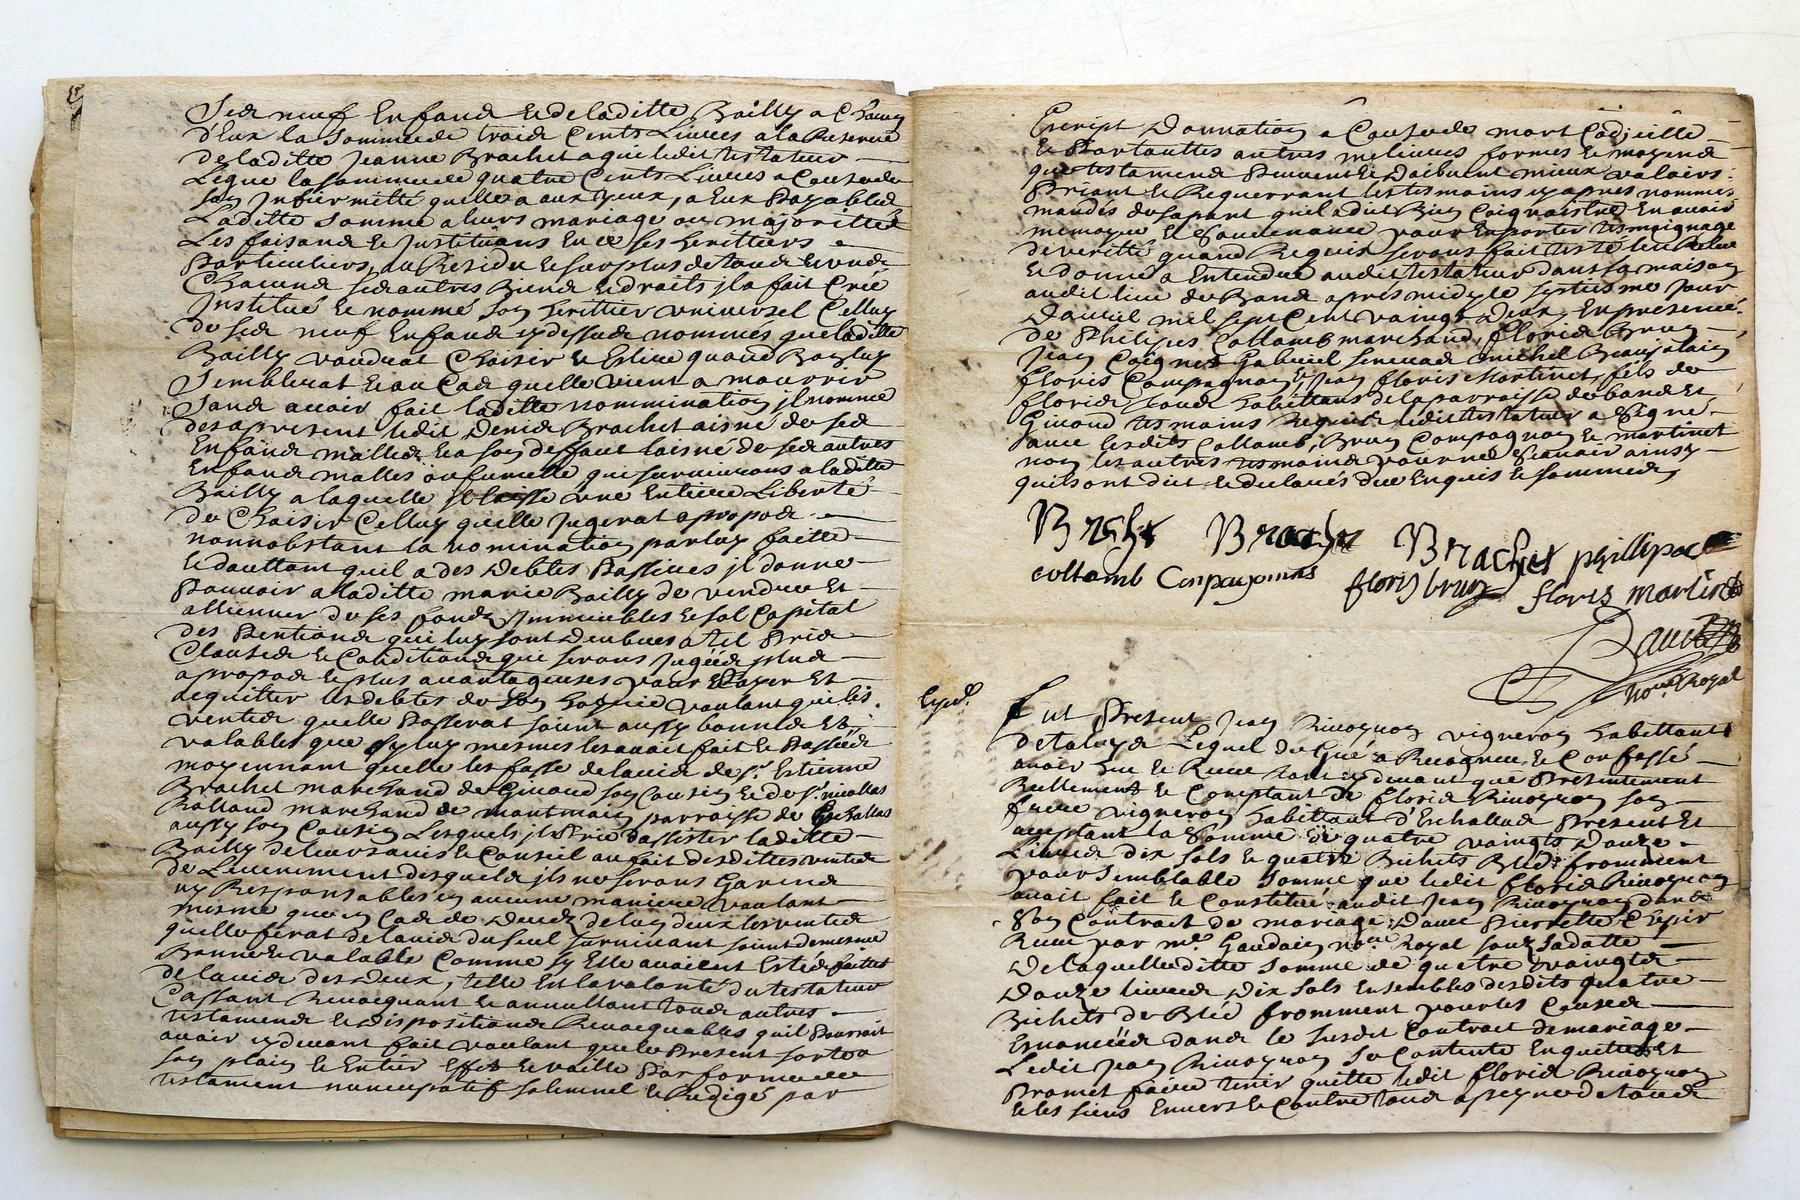 Ses neuf Enfans et de laditte Bailly a Chacun
d'Eux la Somme de trois Cents Livres a la Reserve
de laditte Jeanne Brachet a qui ledit testateur
Legue la somme de quatre Cents Livres a Cause de
son Infirmitté quelle a aux yeux, a Eux Payables
Laditte Somme a leurs mariage ou majorittés
Les faisans et Instituans En ce ses herittiers
Particuliers, au Residu et surplus de tous et uns
Chacuns ses autres Biens et droits jl a fait Créé
Institué et nommé son herittier universel Celluy
de ses neuf Enfans cy dessus nommés que laditte
Bailly voudrat Choisir et Eslire quand Bon luy
Semblerat et au Cas quelle vient a mourrir
Sans avoir fait laditte nommination jl nomme
des apresent ledit Denis Brachet aisné de ses
Enfans malles et a son deffaut laisné de ses autres
Enfans malles ou fumelle qui survivrons a laditte
Bailly a laquelle jl laisse une Entiere Liberté
de Choisir Celluy quelle Jugerat apropos
nonnobstant la nomination par luy faitte
et dauttant quil a des Debtes Passives jl donne
Pouvoir a laditte marie Bailly de vendre Et
allienner de ses fonds Immeubles et sol Capital
des Pentions qui luy sont deubues a tel Prix
Clauses et Conditions que serons Jugées plus
apropos et plus avantageuses pour Payer Et
acquitter les debtes de son hoyrie voulant que les
ventes quelle Passerat soint aussy bonnes Et
valables que sy luy mesmes les avoit fait et Passées
moyennant quelle les fasse de lavis de sr. Estienne
Brachet marchand de Givord son Cousin et de sr. nicollas
Rolland marchand de montmain parroisse de Eschallas
aussy son Cousin Lesquels jl Prie dassister laditte
Bailly de leurs avis et Conseil au fait desdittes ventes
de Levenement desquels jls ne serons Garend
ny Responsables en aucune maniere voulant
mesme quen Cas de deces de luy deux les ventes
quelle ferat de lavis du seul survivant soint de mesme
Bonne et valable Comme sy Elle avoient Estés faittes
de lavis des deux, telle Est la volonté du testateur
Cassant Revocquant et annullant tous autres
testamens et dispositions Revocquables quil Pourroit
avoir cy devant fait voulant que le Present sorte a
son plain et Entier Effet et vaille Par forme de
testament nuncupatif solemnel et Redigé par
Escript Donnation a Cause de mort Codicille
et Par touttes autres melieures formes et moyens
que testamens Peuvent et Doibvent mieux valoirs
Priant et Requerrant les tesmoins cy apres nommes
mandés de sa part quel a dit Bien Coignaistre En avoir
memoyre et Souvenance pour En porter tesmoignage
de verité quand Requis serons fait Leu Releu
et donné a Entendre audit testateur dans sa maison
audit lieu de Bans apres midy le septiesme Jour
Davril mil sept Cent vaingt deux, En presence
de Philipes Collomb marchand, floris Brun
Jean Coignet Gabriel servan michel Beaujolain
floris Compagnon et Jean floris Martinet fils de
floris tous habittans de la parroisse de bans Et
Givord tesmoins Requis ledit testateur a Signé
avec lesdits Collomb, Brun Compagnon et martinet
non les autres tesmoins pour ne Scavoir ainsy
quils ont dit et declarés de ce Enquis et sommés
Brachet Brachet Brachet phillipe
collamb Conpagonns floris brun floris martinet
nore. Royal
Exped.
Fut Present Jean Rivoyron vigneron habittant
de taluyers Lequel de Gré a Recogneu et Confessé
avoir Eue et Receu tant cy devant que Presentement
Reellement et Comptant de floris Rivoyron son
frere vigneron habittant d'Eschallas Present Et
acceptant la Somme de quatre vaingts Douze
Livres dix sols et quatre Bichets Bled fromment
pour semblable Somme que ledit floris Rivoyron
avoit fait et Constitué audit Jean Rivoyron dans
Son Contract de mariage avec Pierrette Crepier
Receu par me. Gaudain nore. Royal souz sa datte
De laquelle ditte somme de quatre vaingts
Douze livres Dix Sols Ensembles desdits quatre
Bichets de Bled fromment pour les Causes
Enoncées dans le susdit Contract de mariage
Ledit Jean Rivoyron se Contente En quitte Et
Promet faire tenir quitte ledit floris Rivoyron
et les siens Envers et Contre tous a peyne de tous